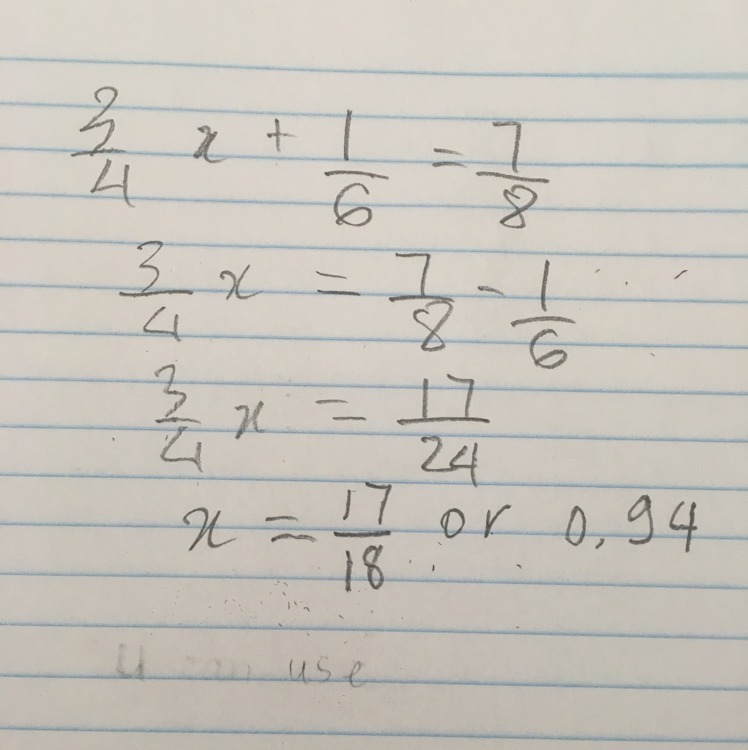 3/4 x + 1/6 = 7/8
3/4 x = 7/8 - 1/6
3/4 x = 17/24
x = 17/18 or 0.94
u can use